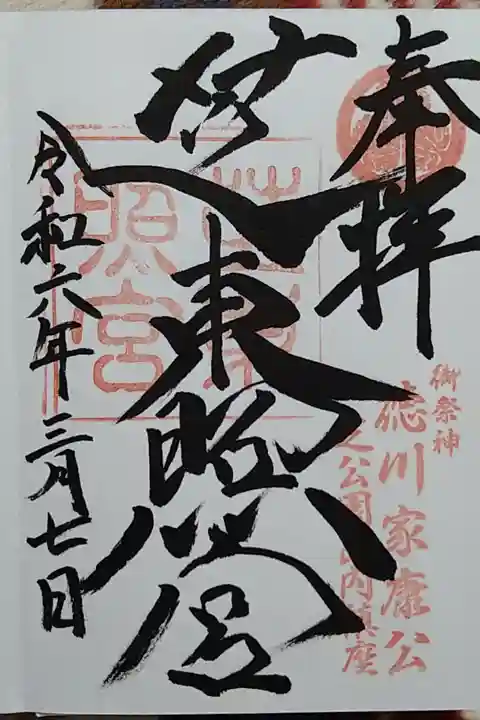 奉拝
御祭神
徳川家康公
内鎮座
芝東照宮
芝東
照宮
令和六年三月七日